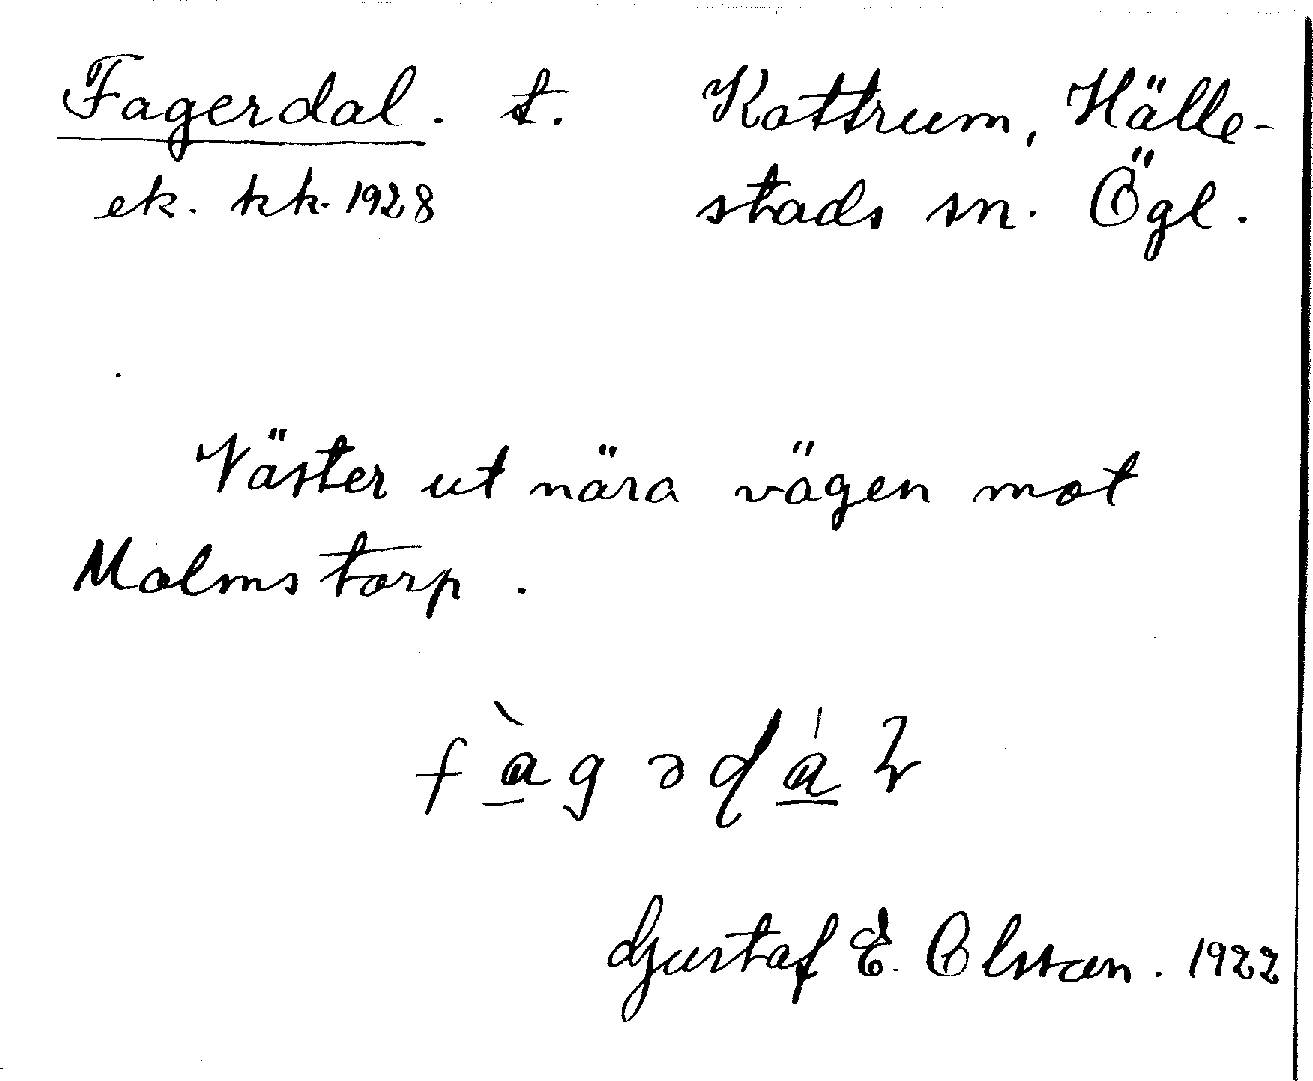 Fagerdal. t. Kattrum, Hälle-
ek. kk. 1928 stads sn. Ögl.
Väster ut nära vägen mot
Malmstorp.
Gustaf E. Olsson. 1922